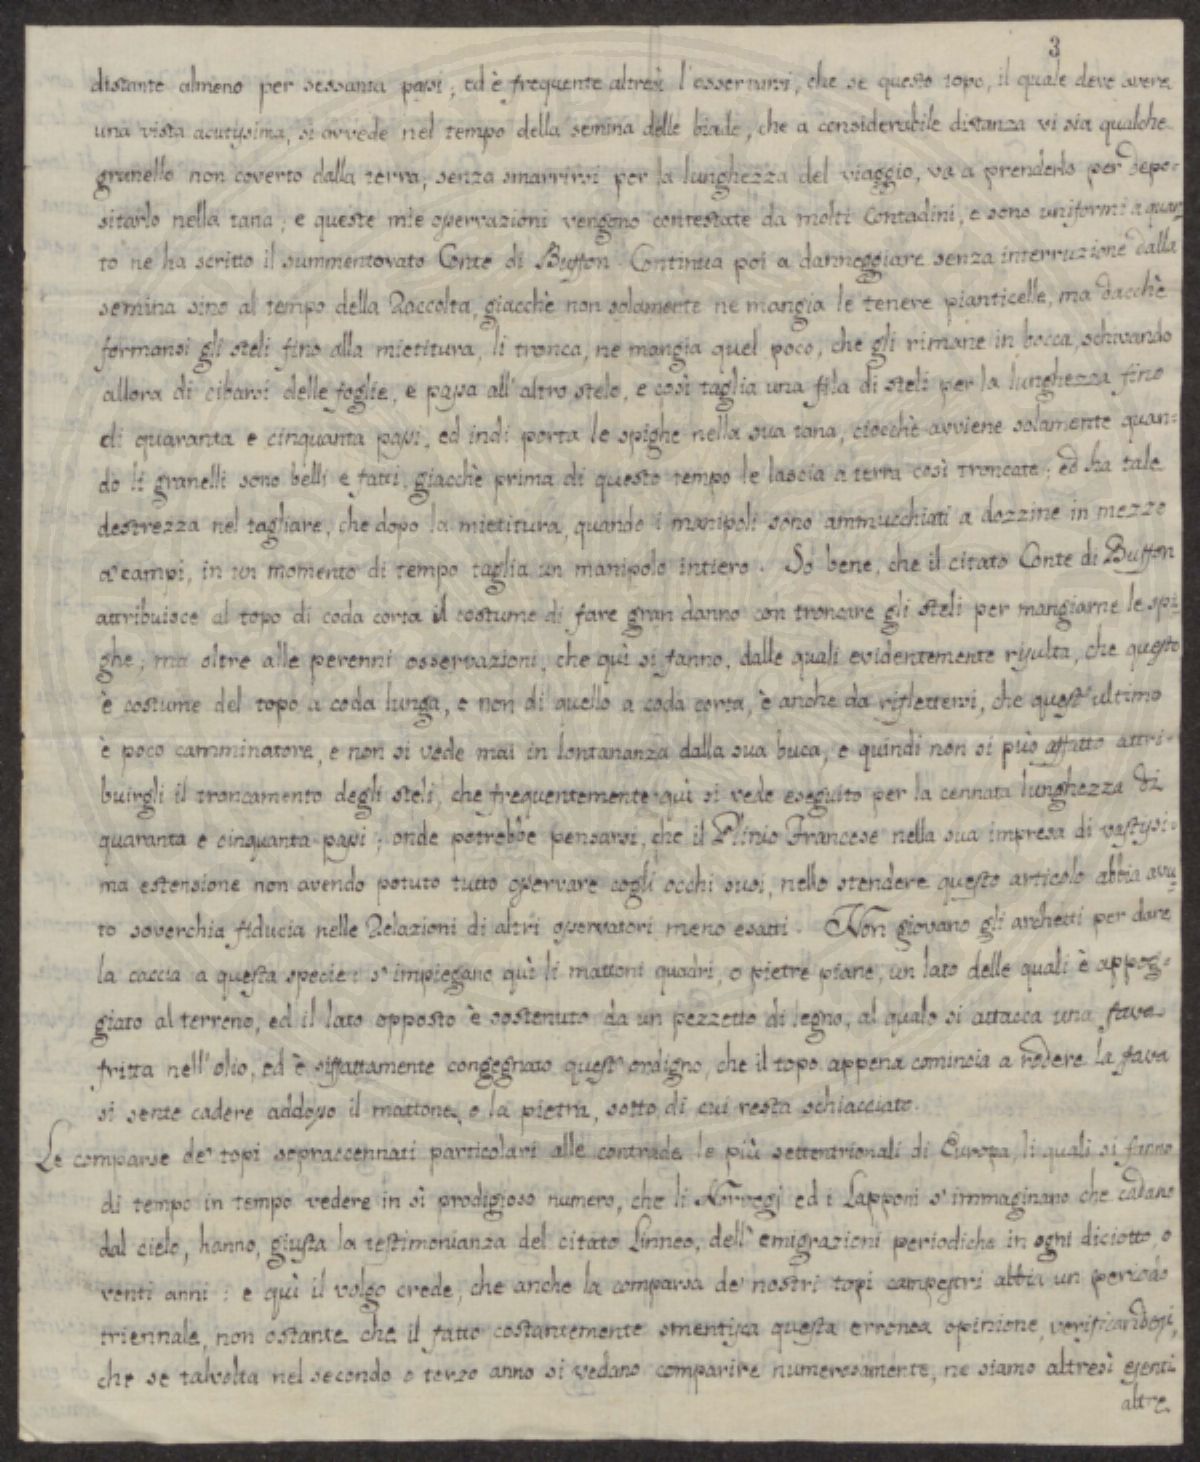 3
distante almeno per sessanta passi; ed è frequente altresì l'osservarsi, che se questo topo, il quale deve avere
una vista acutissima, si avvede nel tempo della semina delle biade, che a considerabile distanza vi sia qualche
granello non coverto dalla terra, senza smarrirsi per la lunghezza del viaggio, va a prenderlo per depo-
sitarlo nella tana; e queste mie osservazioni vengono contestate da molti Contadini, e sono uniformi a quan
to ne ha scritto il summentovato Conte di Buffon. Continua poi a danneggiare senza interruzione dalla
semina sino al tempo della Raccolta, giacchè non solamente ne mangia le tenere pianticelle, ma dacchè
formansi gli steli fino alla mietitura, li tronca, ne mangia quel poco, che gli rimane in bocca, schivando
allora di cibarsi delle foglie, e passa all'altro stelo, e così taglia una fila di steli per la lunghezza fino
di quaranta e cinquanta passi, ed indi porta le spighe nella sua tana, ciocchè avviene solamente quan-
do li granelli sono belli e fatti, giacchè prima di questo tempo le lascia a terra così troncate; ed ha tale
destrezza nel tagliare, che dopo la mietitura, quando i manipoli sono ammucchiati a dozzine in mezzo
a' campi, in un momento di tempo taglia un manipolo intiero. So bene, che il citato Conte di Buffon
attribuisce al topo di coda corta il costume di fare gran danno con troncare gli steli per mangiarne le spi-
ghe; ma oltre alle perenni osservazioni, che quì si fanno, dalle quali evidentemente risulta, che questo
è costume del topo a coda lunga, e non di quello a coda corta, è anche da riflettersi, che quest'ultimo
è poco camminatore, e non si vede mai in lontananza dalla sua buca, e quindi non si può affatto attri-
buirgli il troncamento degli steli, che frequentemente quì si vede eseguito per la cennata lunghezza di
quaranta e cinquanta passi; onde potrebbe pensarsi, che il Plinio Francese nella sua impresa di vastissi-
ma estensione non avendo potuto tutto osservare cogli occhi suoi, nello stendere questo articolo abbia avu-
to soverchia fiducia nelle Relazioni di altri osservatori meno esatti. Non giovano gli archetti per dare
la caccia a questa specie: s'impiegano quì li mattoni quadri, o pietre piane, un lato delle quali è appog-
giato al terreno, ed il lato opposto è sostenuto da un pezzetto di legno, al quale si attacca una fava
fritta nell'olio, ed è siffattamente congegnato quest'ordigno, che il topo appena comincia a rodere la fava
si sente cadere addosso il mattone, o la pietra, sotto di cui resta schiacciato.
Le comparse de' topi sopraccennati particolari alle contrade le più settentrionali di Europa, li quali si fanno
di tempo in tempo vedere in sì prodigioso numero, che li Norvegj ed i Lapponi s'immaginano che cadano
dal cielo, hanno, giusta la testimonianza del citato Linneo, dell'emigrazioni periodiche in ogni diciotto, o
venti anni: e quì il volgo crede, che anche la comparsa de' nostri topi campestri abbia un periodo
triennale, non ostante che il fatto costantemente smentisca questa erronea opinione, verificandosi,
che se talvolta nel secondo o terzo anno si vedano comparire numerosamente, ne siamo altresì esenti
altre